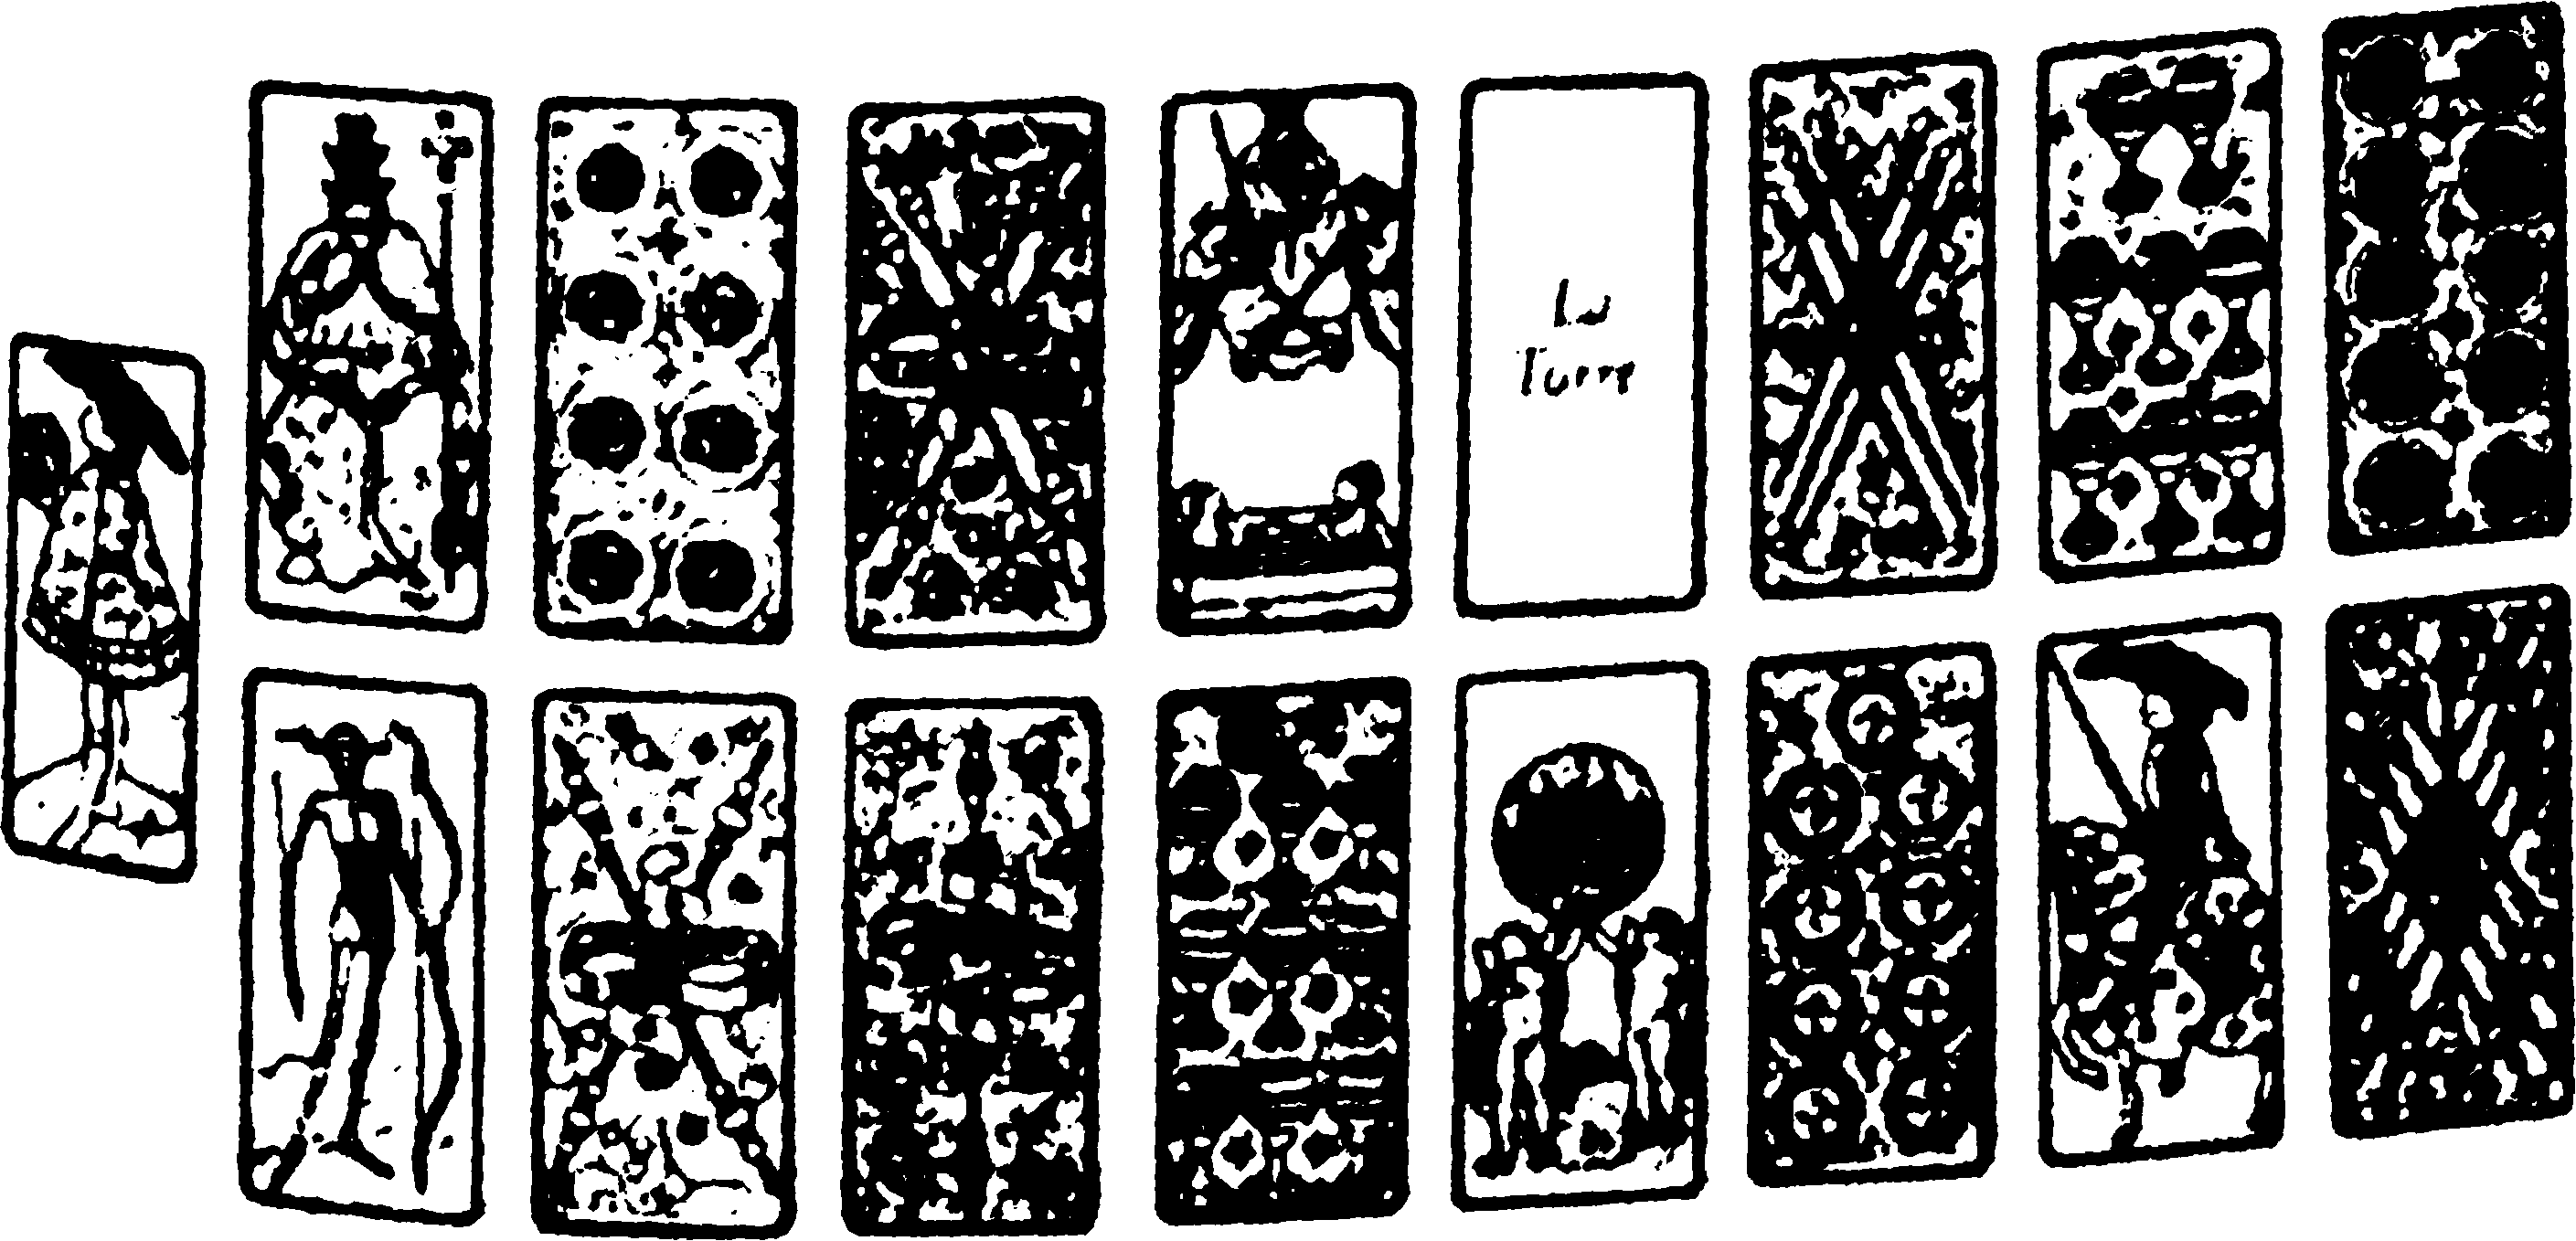 La
Torre